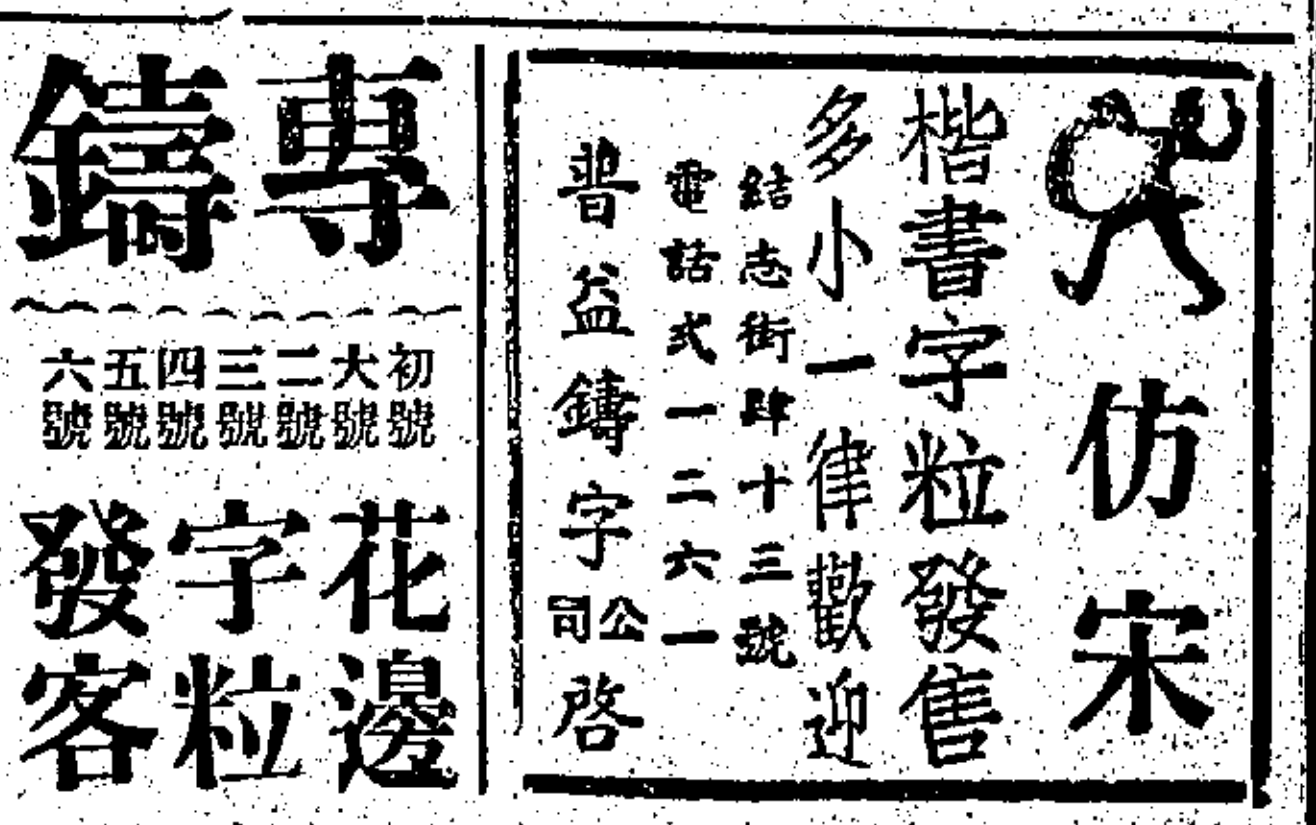 仿宋
楷書字粒發售
多小一律歡迎
結志街肆十三號
電話弍一二六一
普益鑄字公司啓
專鑄
初號
大號
二號
三號
四號
五號
六號
花邊
字粒
發客